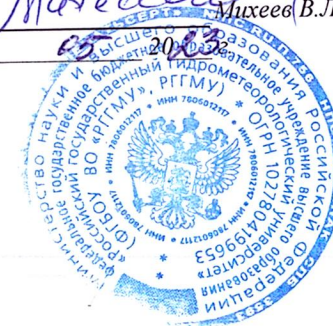 Михеев В.Л.
05 2023г.
Министерство науки и высшего образования Российской Федерации
федеральное государственное бюджетное образовательное учреждение высшего образования
«Российский государственный гидрометеорологический университет»
(ФГБОУ ВО «РГГМУ», РГГМУ) * ОГРН 1027804199653